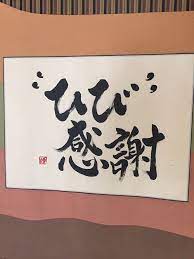 ひび
感謝